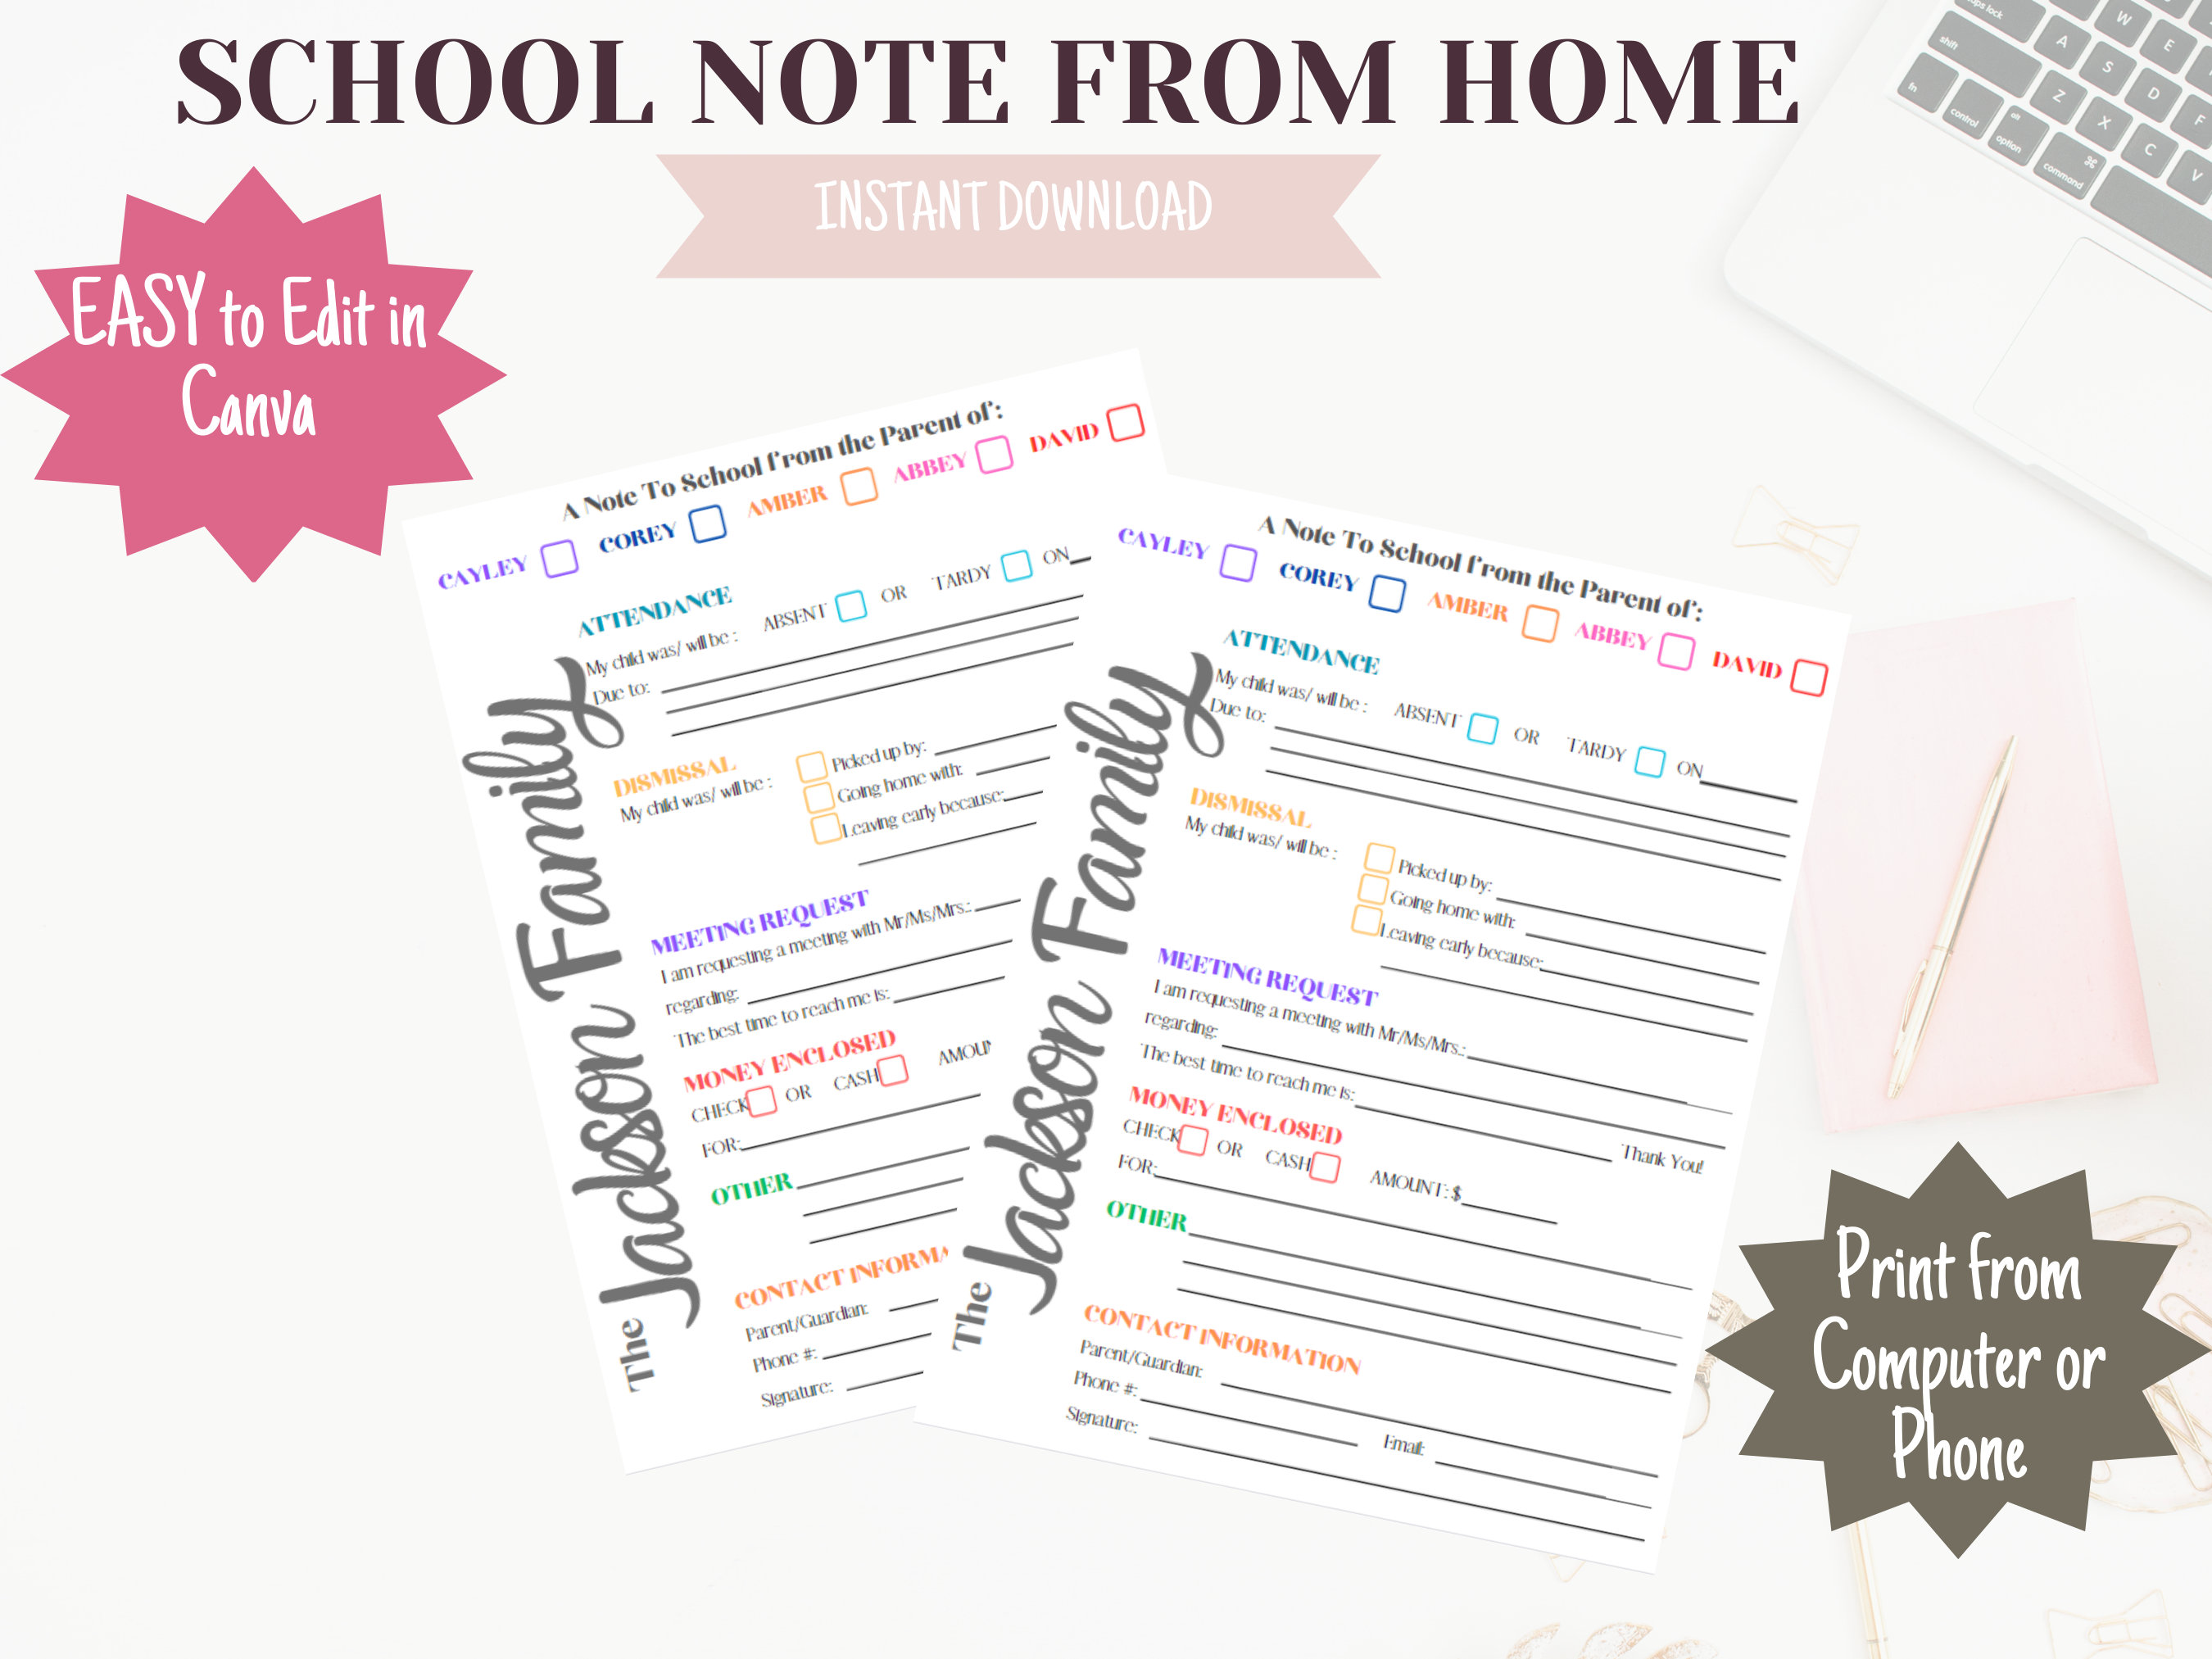 SCHOOL NOTE FROM HOME
INSTANT DOWNLOAD
EASY to Edit in
Canva
A Note To School from the Parent of:
CAYLEY COREY AMBER ABBEY DAVID
ATTENDANCE
My child was/ will be : ABSENT OR TARDY ON
Due to:
DISMISSAL
My child was/ will be :
Picked up by:
Going home with:
Leaving early because:
MEETING REQUEST
I am requesting a meeting with Mr/Ms/Mrs.:
regarding:
The best time to reach me is:
MONEY ENCLOSED
CHECK OR CASH AMOUN
FOR:
OTHER
CONTACT INFORMA
Parent/Guardian:
Phone #:
Signature:
The Jackson Family
A Note To School from the Parent of:
CAYLEY COREY AMBER ABBEY DAVID
ATTENDANCE
My child was/ will be : ABSENT OR TARDY ON
Due to:
DISMISSAL
My child was/ will be :
Picked up by:
Going home with:
Leaving early because:
MEETING REQUEST
I am requesting a meeting with Mr/Ms/Mrs.:
regarding:
The best time to reach me is:
Thank You!
MONEY ENCLOSED
CHECK OR CASH AMOUNT: $
FOR:
OTHER
CONTACT INFORMATION
Parent/Guardian:
Phone #: Email:
Signature:
The Jackson Family
Print from
Computer or
Phone
caps lock
shift
fn
control
alt
option
⌘
command
W
E
A
S
D
F
Z
X
C
V